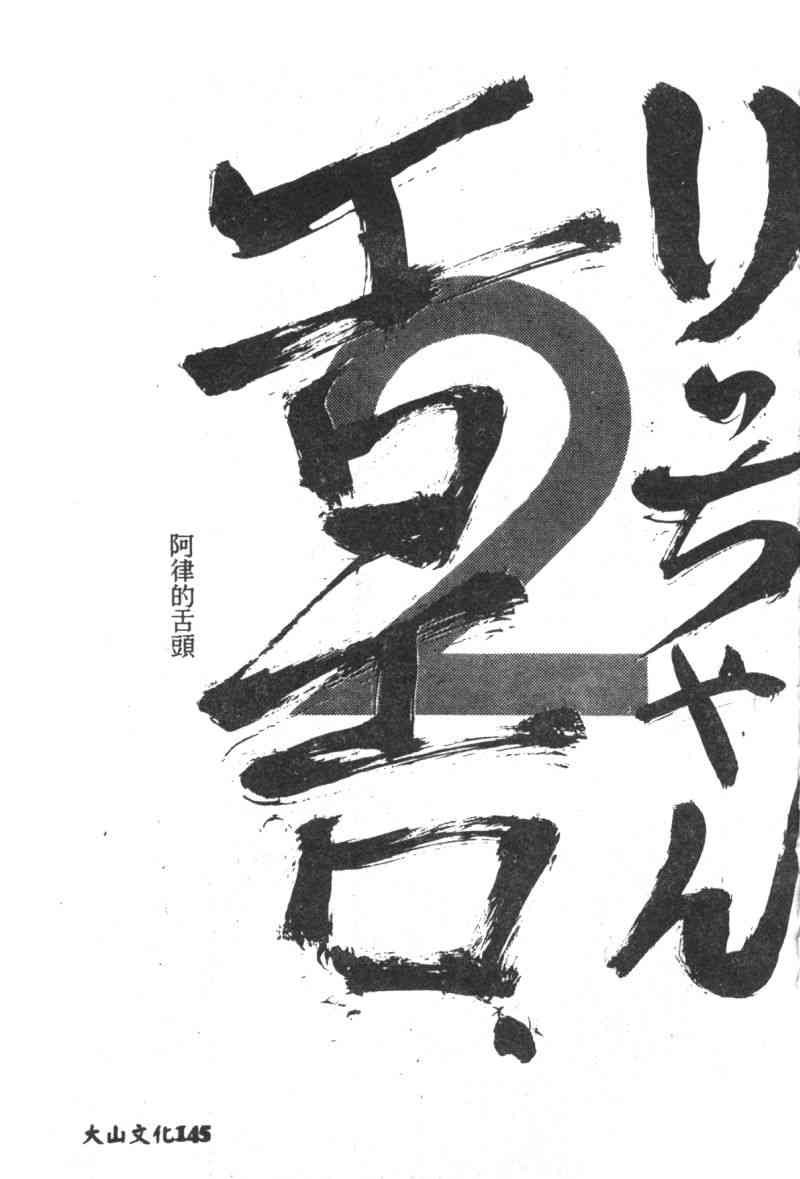 りっちゃん
エロエロ
2
阿律的舌頭
大山文化145